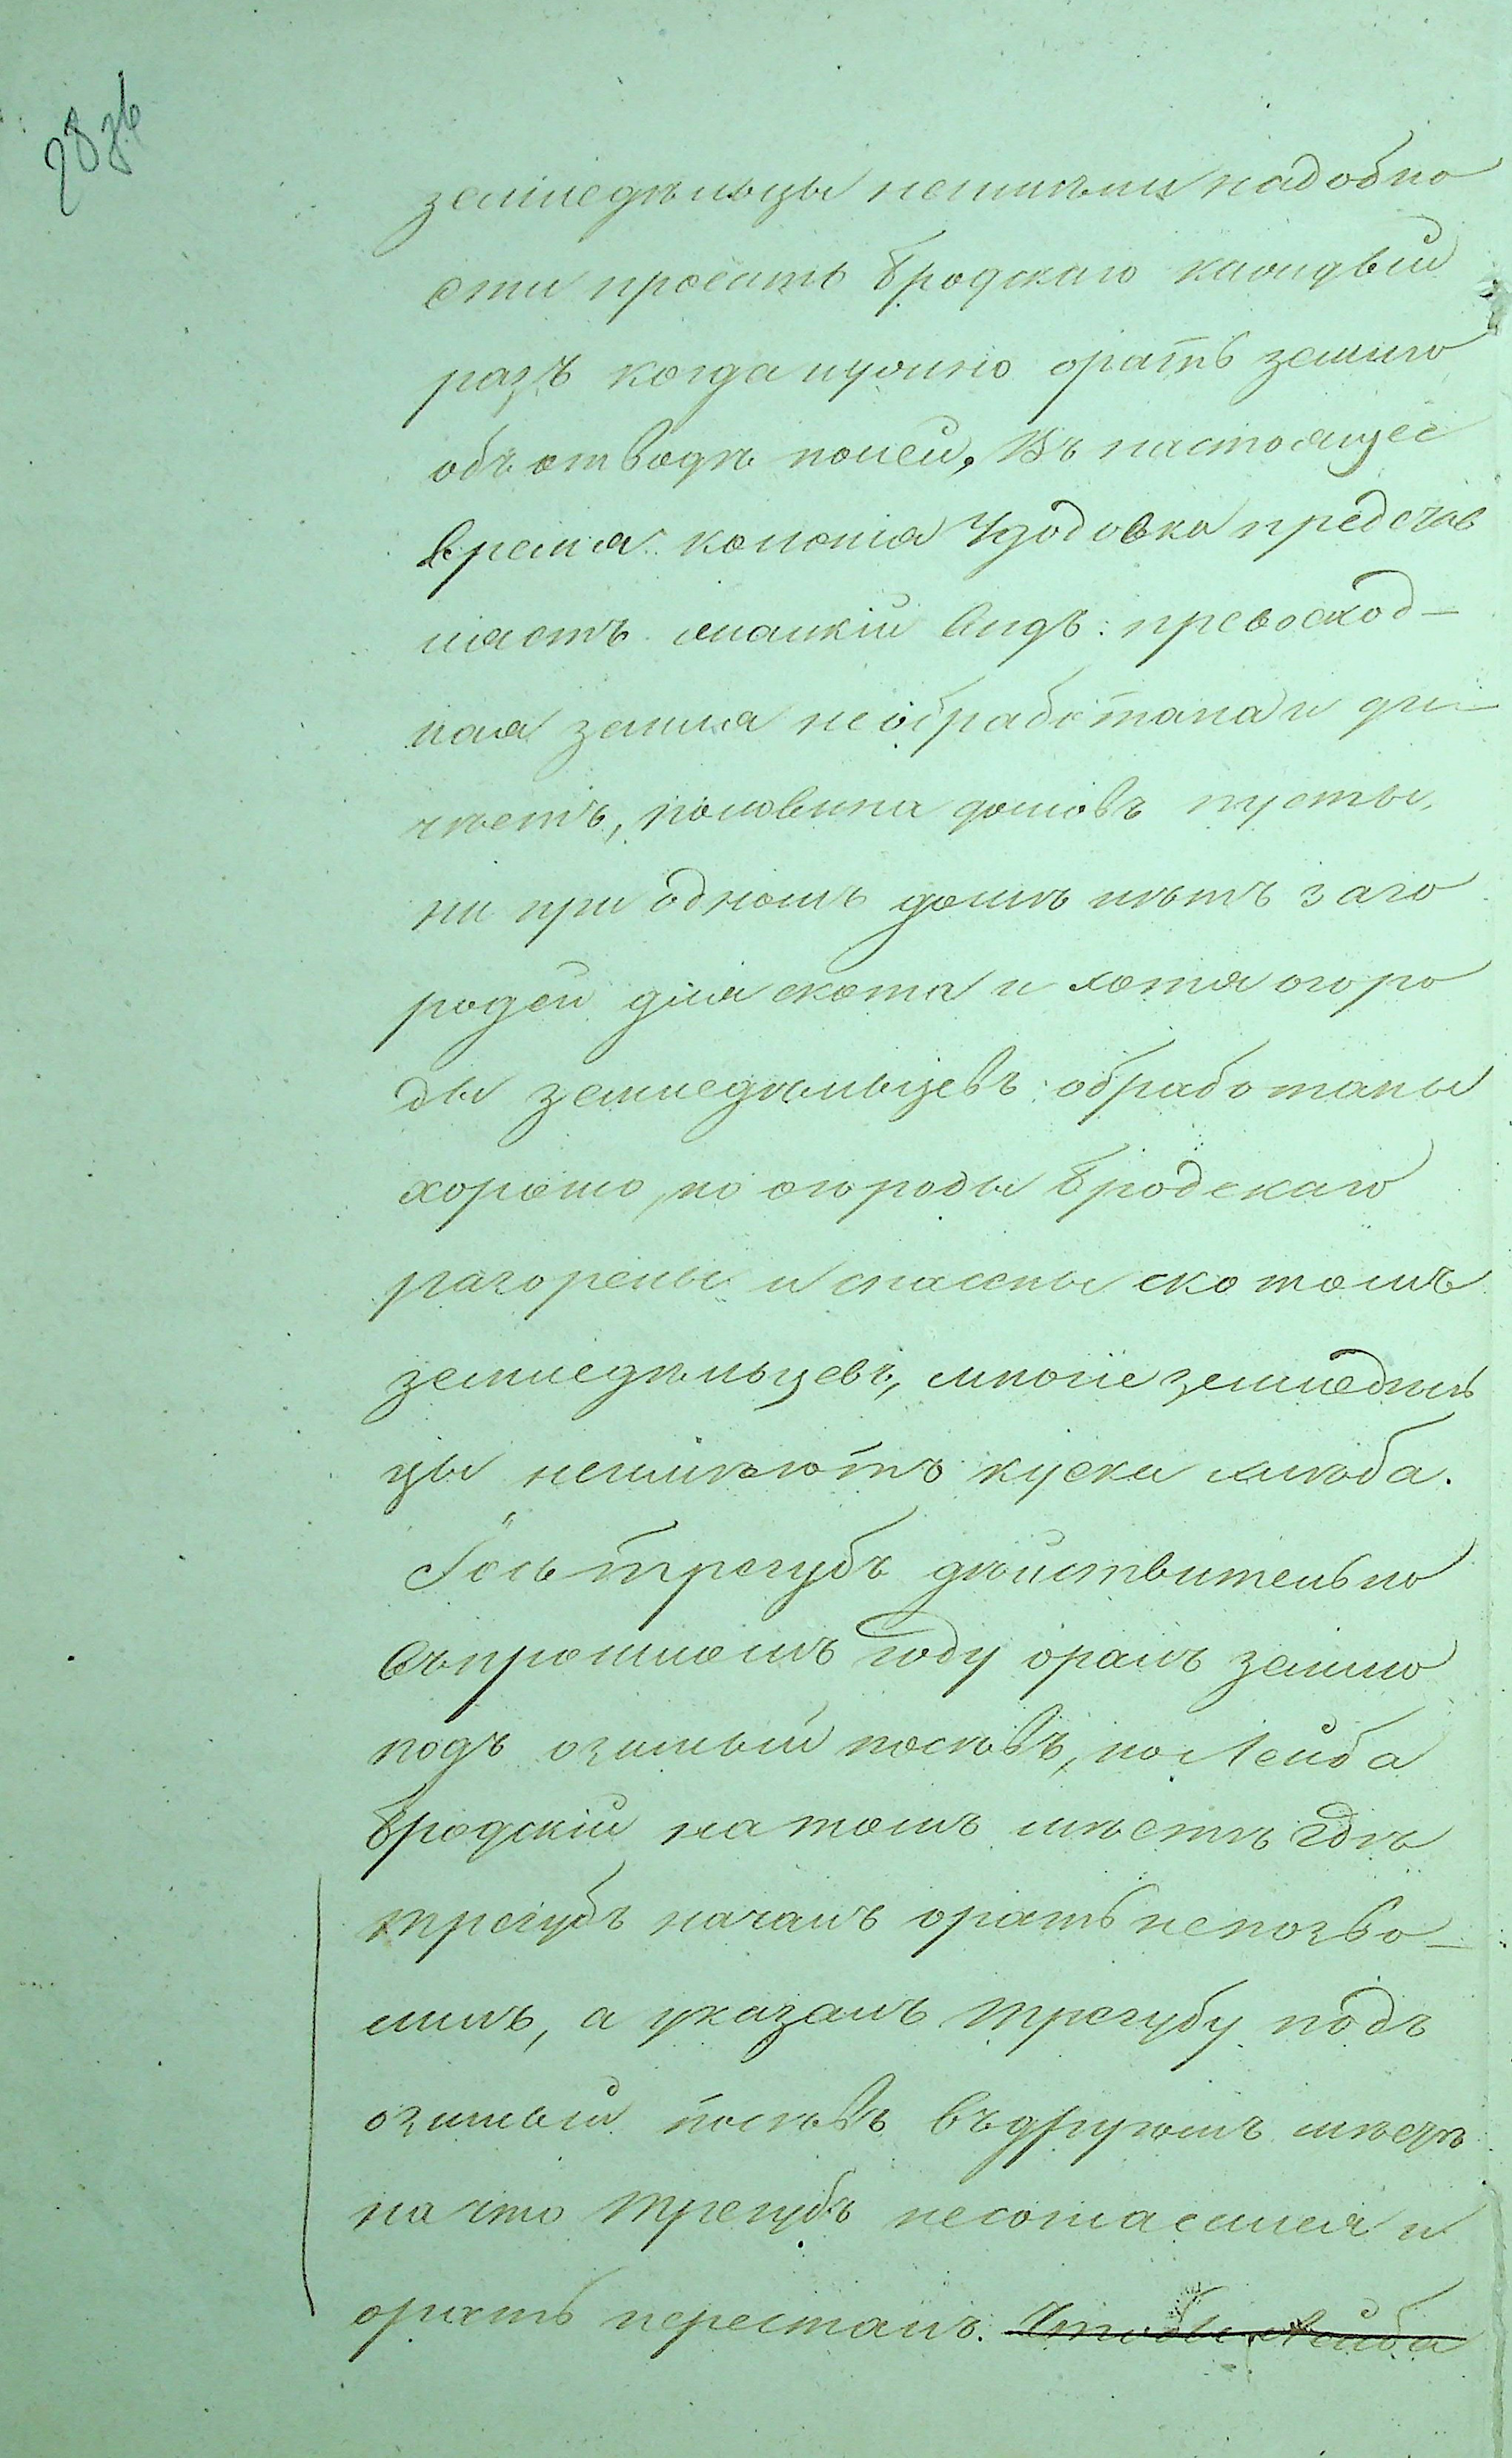 28 об
землѣдѣльцы неимѣли надобно
сти просить Бродскаго каждый
разъ когда нужно орать землю
объ отводѣ полей. Въ настоящее
время колонія Чудовка представ
ляетъ жалкій видъ: превосход-
ная земля необработана и ди-
чаетъ, половина домовъ пусты,
ни при одномъ домѣ нѣтъ заго
родей для скота и хотя огоро
ды земледѣльцевъ обработаны
хорошо, но огороды Бродскаго
разорены и спасены скотомъ
земледѣльцевъ, многіе земледѣль
цы неимѣютъ куска хлѣба.
Іось Трегубъ дѣйствительно
въ прошломъ году оралъ землю
подъ озимый посѣвъ, но Лейба
Бродскій на томъ мѣстѣ гдѣ
Трегубъ началъ орать непозво-
лилъ, а указалъ Трегубу подъ
озимый посѣвъ въ другомъ мѣстѣ
на что Трегубъ несогласился и
орать пересталъ. Чтобы Лейба